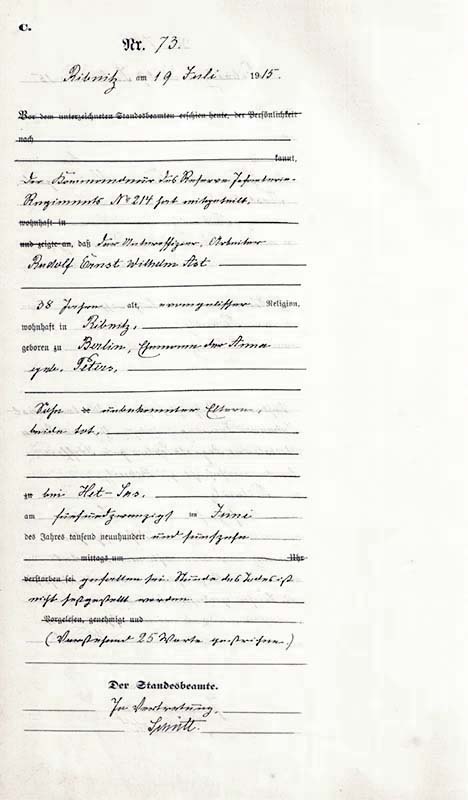 C.
Nr. 73.
Ribnitz, am 19 Juli 1915.
Vor dem unterzeichneten Standesbeamten erschien heute, der Persönlichkeit
nach
kannt,
Der Kommandeur des Reserve Infanterie-
Regiments No 214 hat mitgeteilt,
wohnhaft in
und zeigte an, daß der Unteroffizier, Arbeiter
Rudolf Ernst Wilhelm Ast
38 Jahre alt, evangelischer Religion,
wohnhaft in Ribnitz,
geboren zu Berlin, Ehemann der Anna
geb. Peters,
Sohn unbekannter Eltern,
beide tot,
zu bei Het-Sas,
am fünfundzwanzigst en Juni
des Jahres tausend neunhundert und fünfzehn
mittags um Uhr
verstorben sei gefallen sei. Stunde des Todes ist
nicht festgestellt worden
Vorgelesen, genehmigt und
(Vorstehend 25 Worte gestrichen.)
Der Standesbeamte.
In Vertretung,